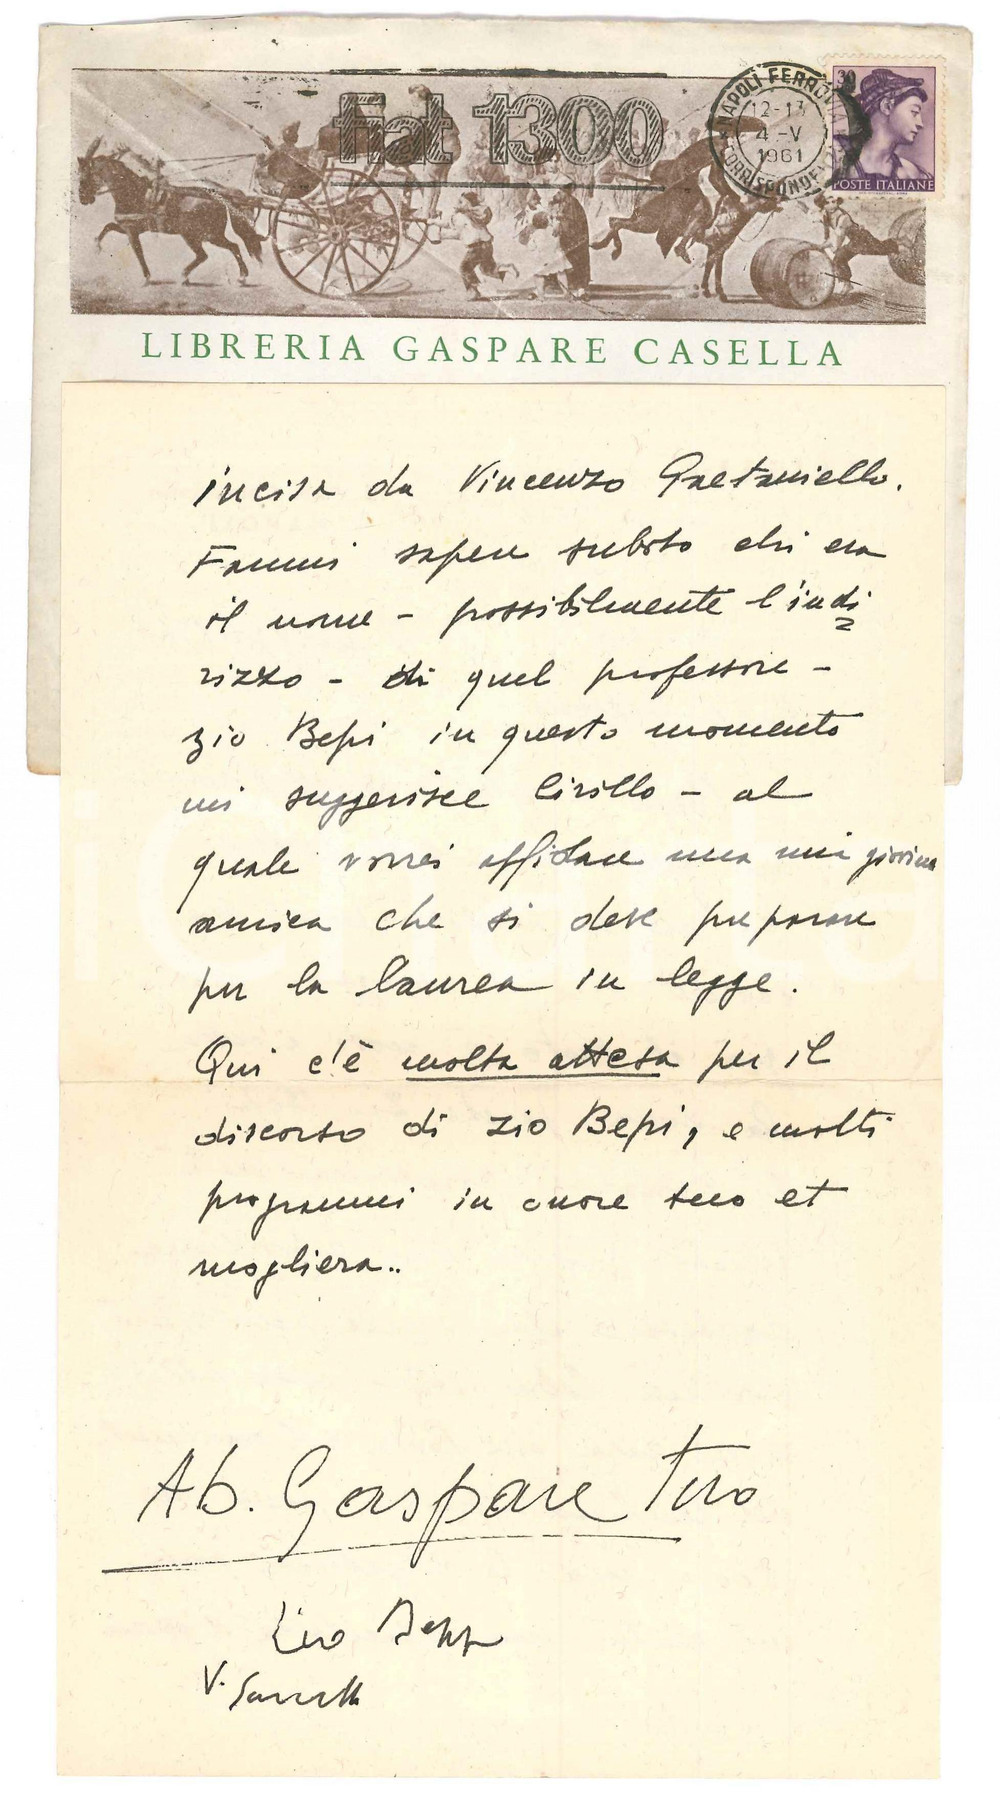 fiat 1300
NAPOLI FERROVIA
12-13
4-V
1961
CORRISPONDENZE
30
POSTE ITALIANE
LIBRERIA GASPARE CASELLA
incisa da Vincenzo Gaetaniello.
Fammi sapere subito chi era
il nome - possibilmente l'indi
rizzo - di quel professore -
zio Bepi in questo momento
mi suggerisce Cirillo - al
quale vorrei affidare una mia giovine
amica che si deve preparare
per la laurea in legge.
Qui c'è molta attesa per il
discorso di zio Bepi, e molti
programmi in cuore suo et
mogliera..
Ab. Gaspare Tuo
V.